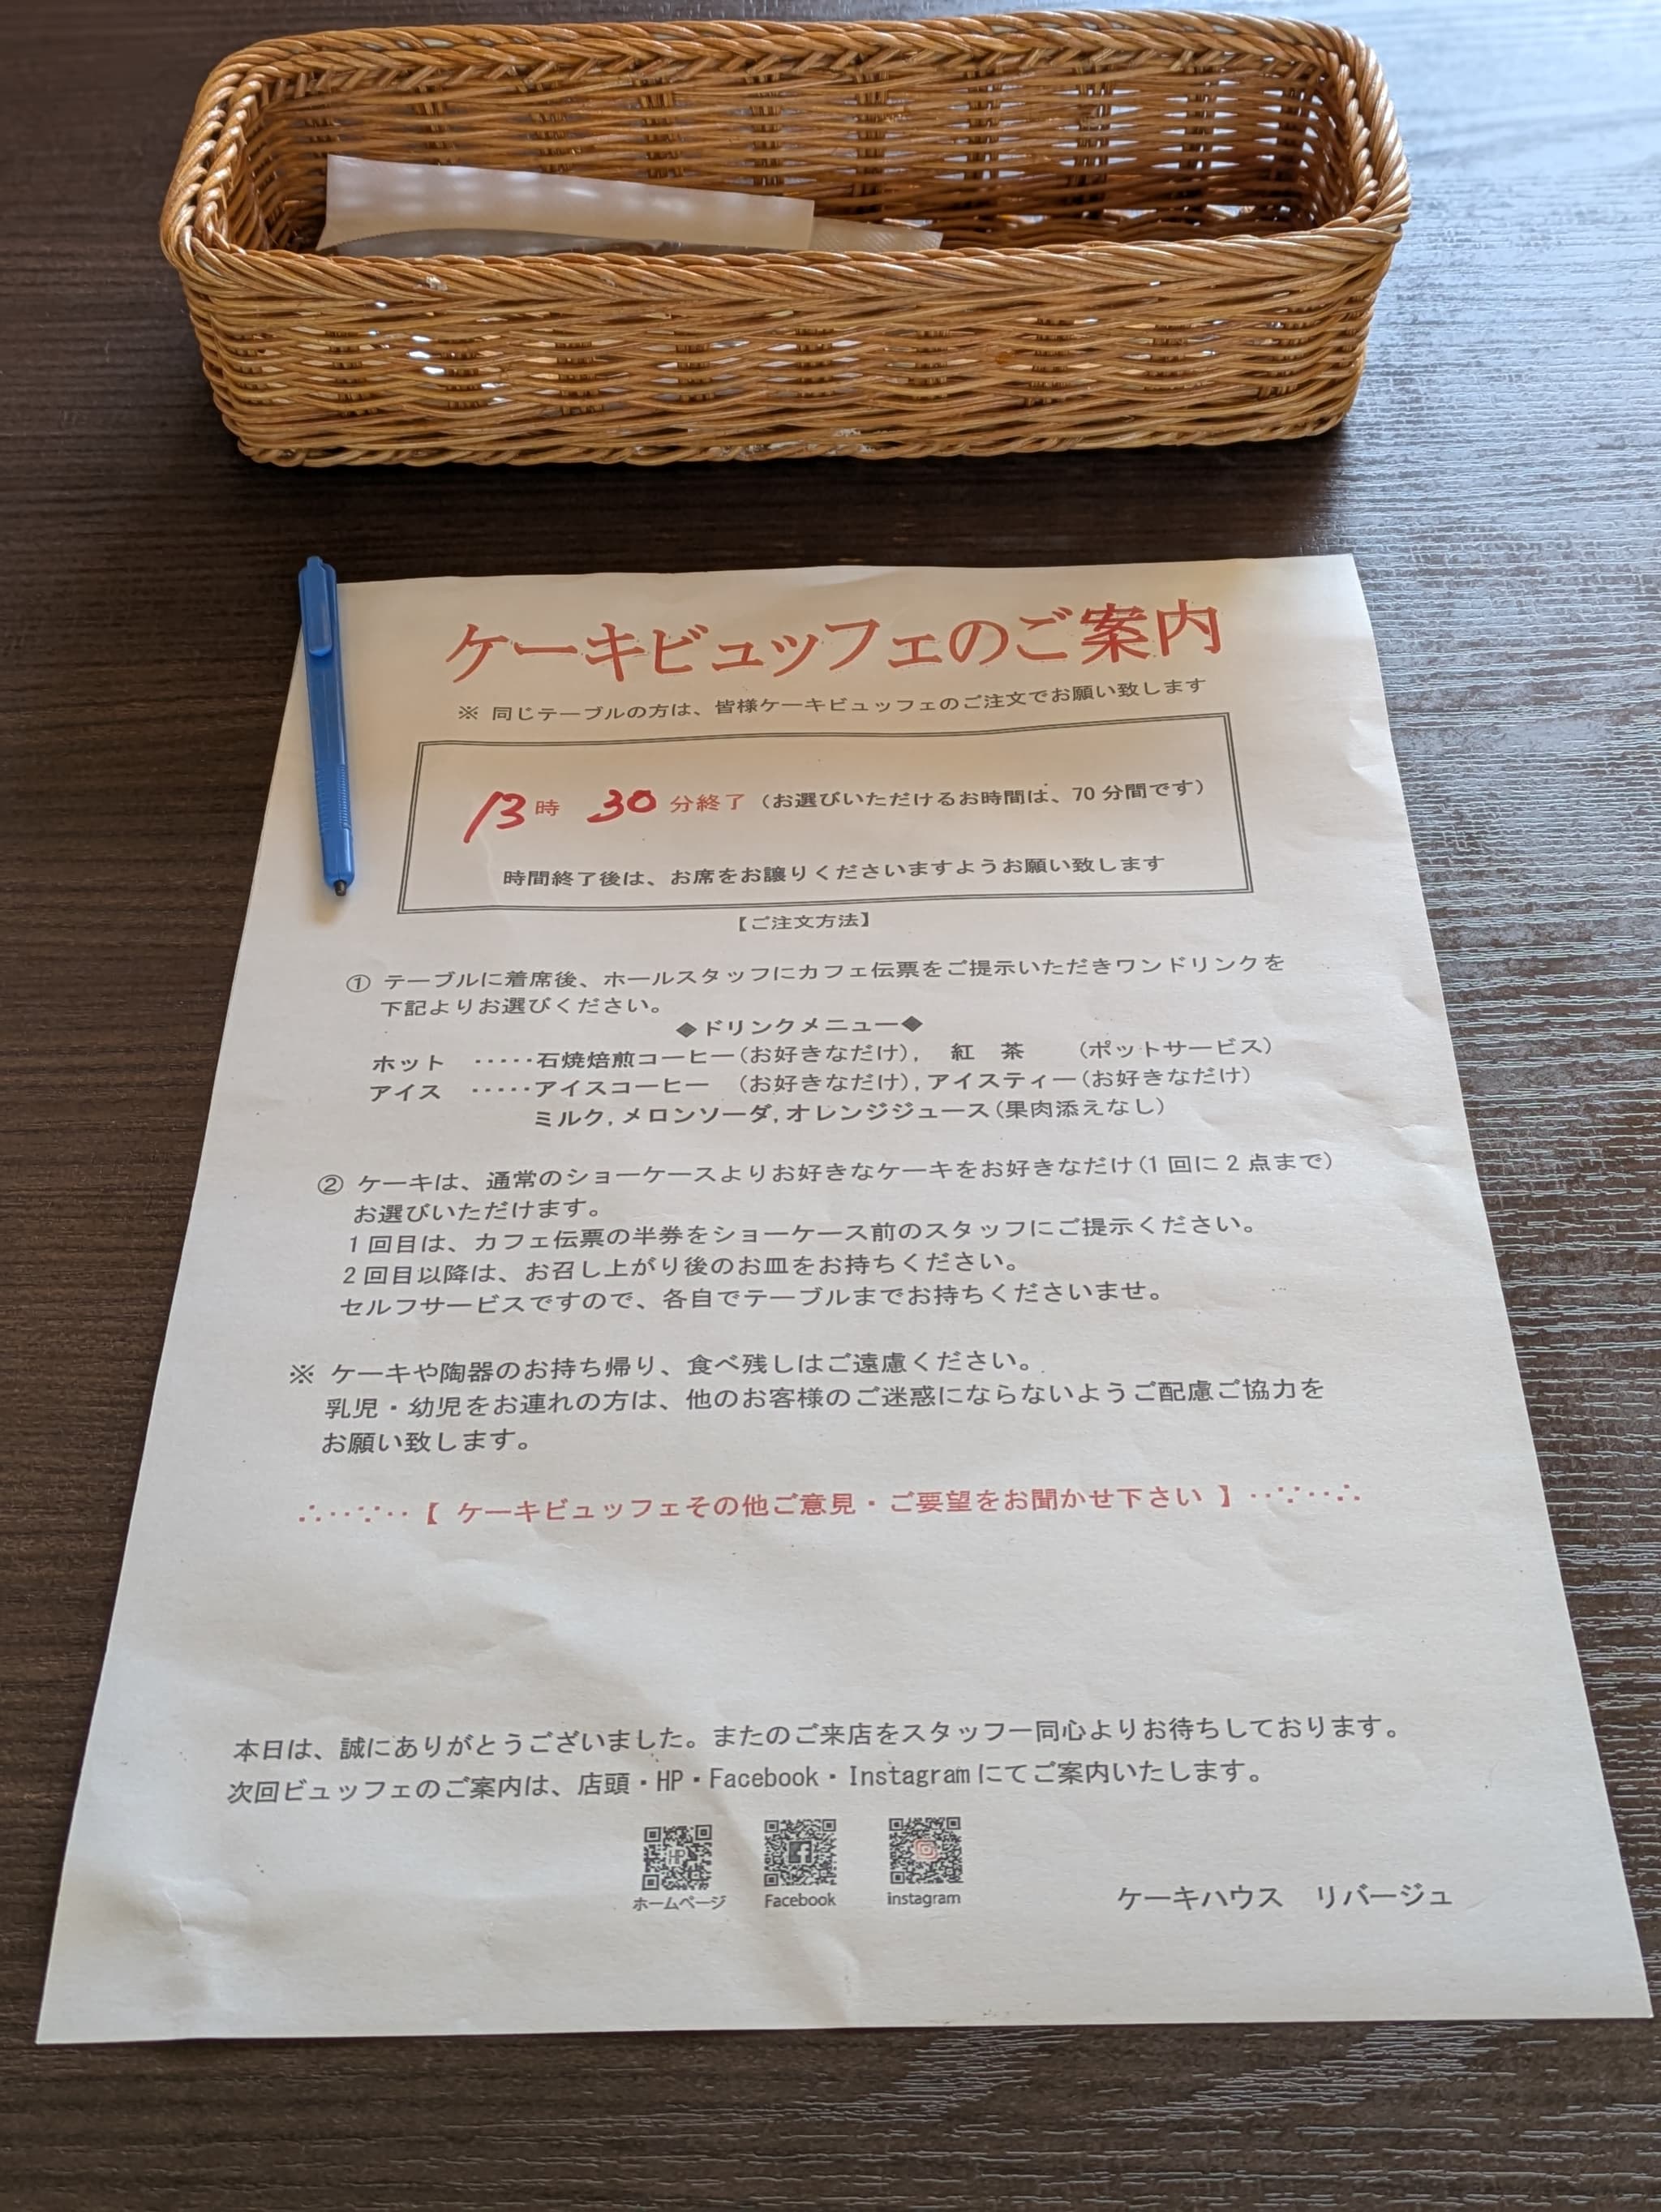 ケーキビュッフェのご案内
※ 同じテーブルの方は、皆様ケーキビュッフェのご注文でお願い致します
13時 30分終了（お選びいただけるお時間は、70分間です）
時間終了後は、お席をお譲りくださいますようお願い致します
【ご注文方法】
① テーブルに着席後、ホールスタッフにカフェ伝票をご提示いただきワンドリンクを
下記よりお選びください。
◆ドリンクメニュー◆
ホット ・・・・・石焼焙煎コーヒー(お好きなだけ), 紅 茶 (ポットサービス)
アイス ・・・・・アイスコーヒー (お好きなだけ),アイスティー(お好きなだけ)
ミルク,メロンソーダ,オレンジジュース(果肉添えなし)
② ケーキは、通常のショーケースよりお好きなケーキをお好きなだけ(1回に2点まで)
お選びいただけます。
1回目は、カフェ伝票の半券をショーケース前のスタッフにご提示ください。
2回目以降は、お召し上がり後のお皿をお持ちください。
セルフサービスですので、各自でテーブルまでお持ちくださいませ。
※ ケーキや陶器のお持ち帰り、食べ残しはご遠慮ください。
乳児・幼児をお連れの方は、他のお客様のご迷惑にならないようご配慮ご協力を
お願い致します。
∴‥∵‥【 ケーキビュッフェその他ご意見・ご要望をお聞かせ下さい 】‥∵‥∴
本日は、誠にありがとうございました。またのご来店をスタッフ一同心よりお待ちしております。
次回ビュッフェのご案内は、店頭・HP・Facebook・Instagramにてご案内いたします。
HP
ホームページ Facebook instagram
ケーキハウス リバージュ